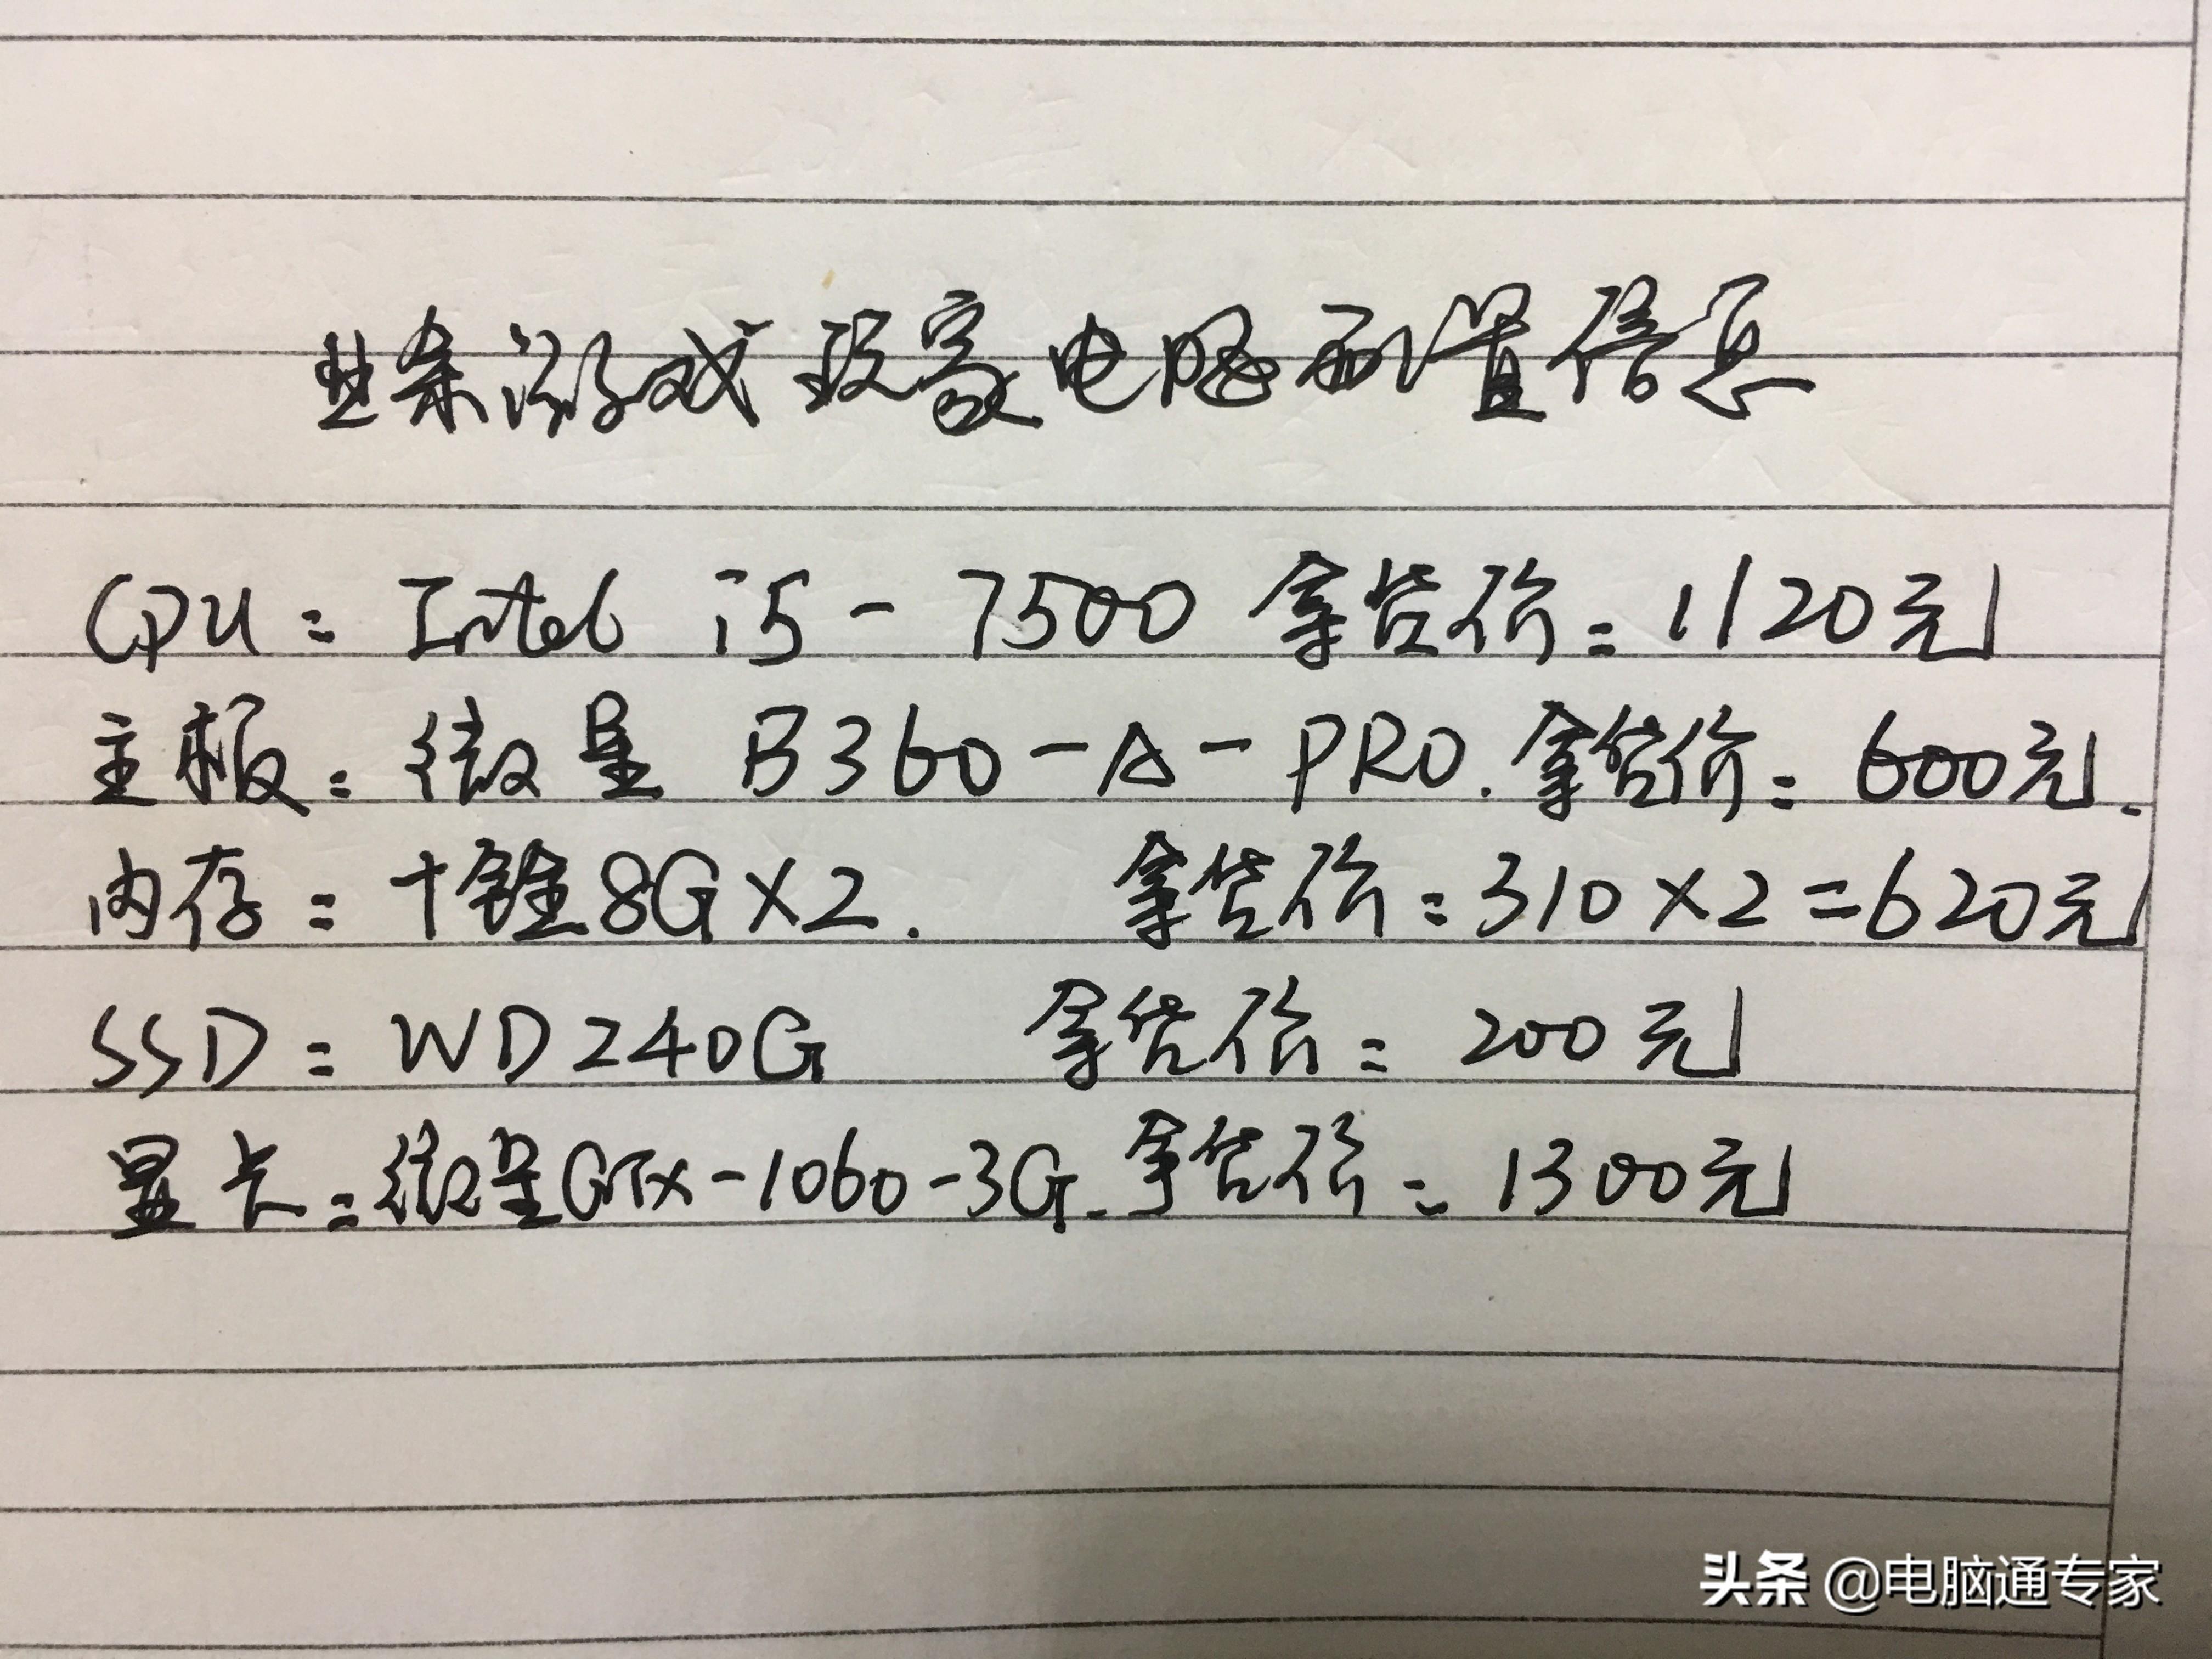 业余游戏玩家电脑配置信息
CPU: Intel i5-7500 拿货价:1120元
主板:微星 B360-A-PRO.拿货价:600元.
内存:十铨8G×2. 拿货价:310×2=620元
SSD:WD240G 拿货价:200元
显卡:微星GTX-1060-3G.拿货价:1300元
头条 @电脑通专家